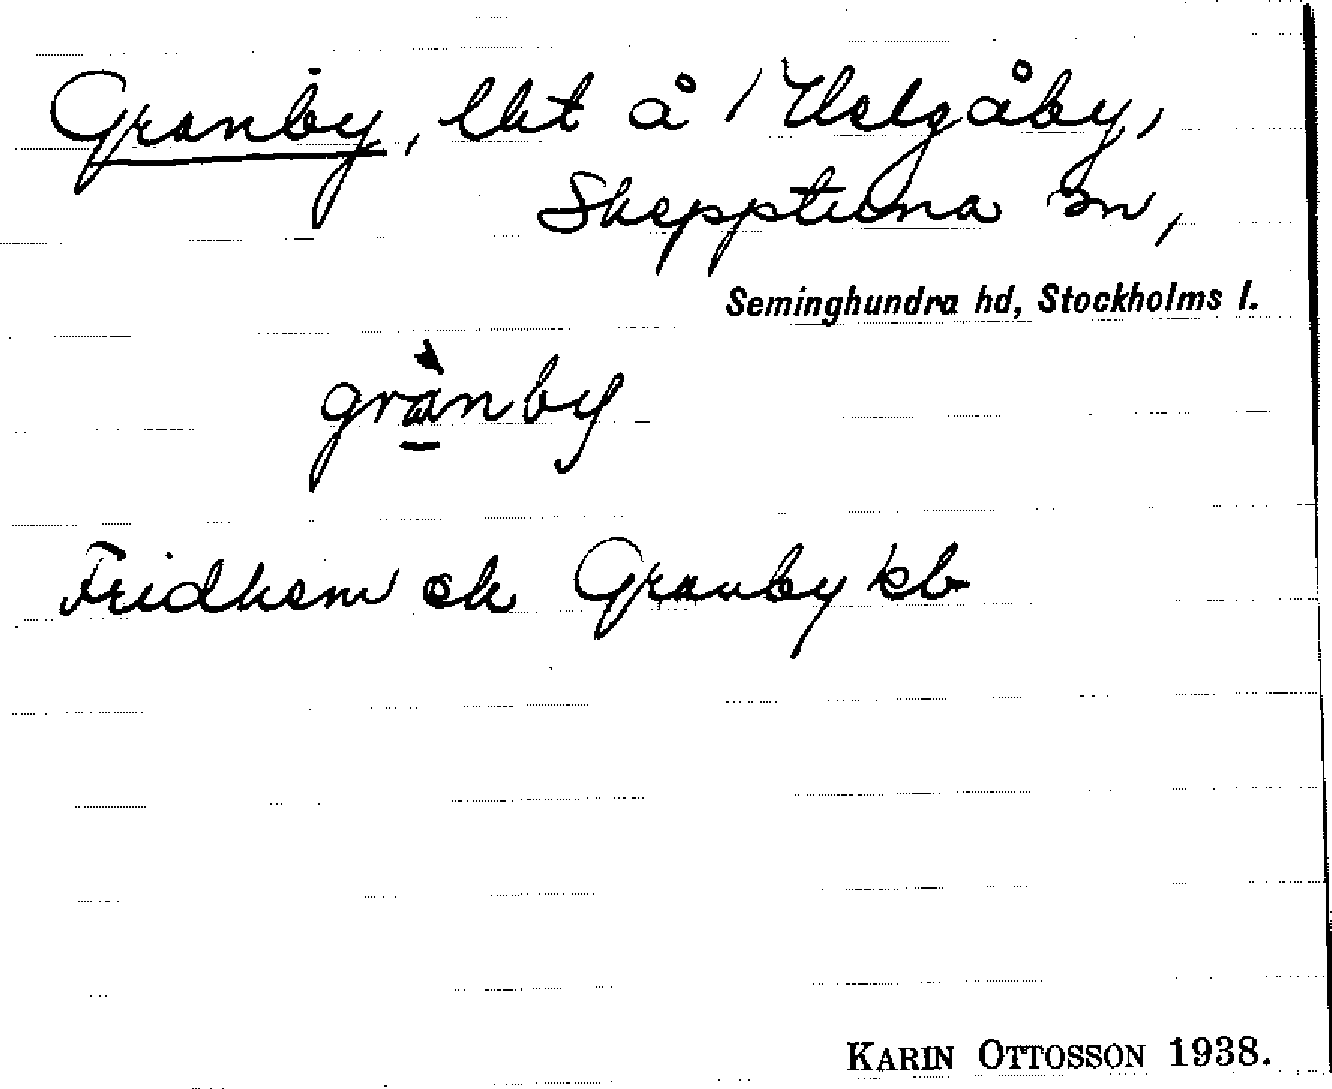 Granby, lht å 1 Helgåby,
Skepptuna sn,
Seminghundra hd, Stockholms l.
grànby
Fridhem ek Granby kb
KARIN OTTOSSON 1938.